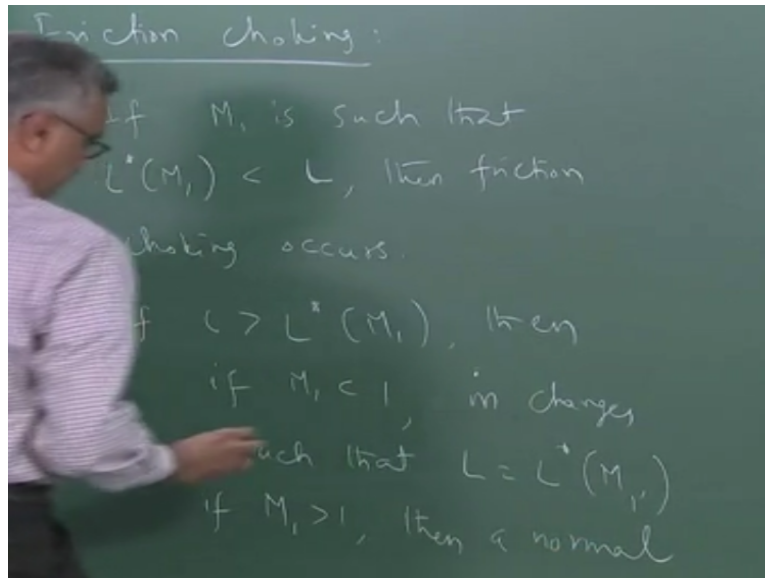 Friction choking:
If M₁ is such that
L*(M₁) < L, then friction
choking occurs.
If L > L*(M₁), then
if M₁ < 1, ṁ changes,
such that L = L*(M₁')
if M₁ > 1, then a normal